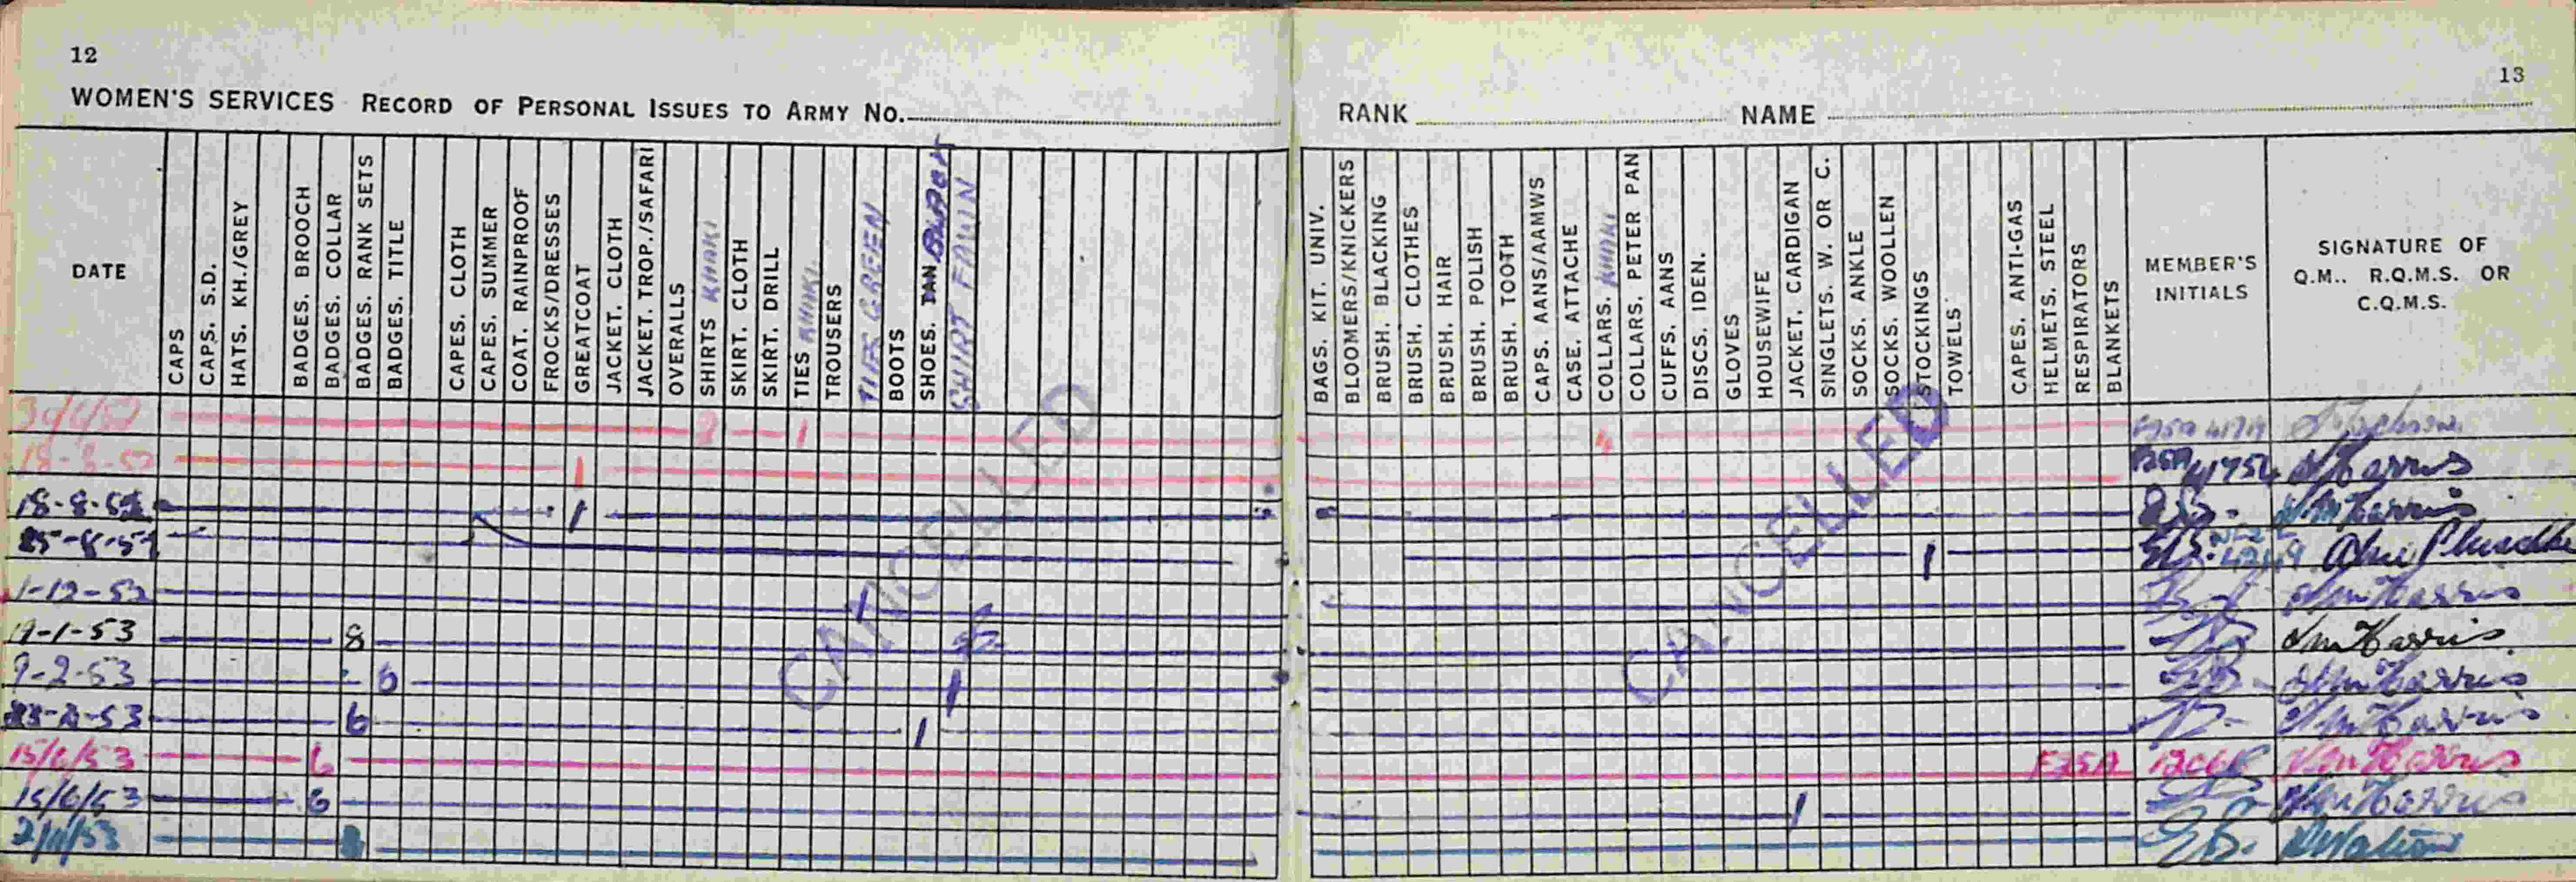 12
13
WOMEN'S SERVICES RECORD OF PERSONAL ISSUES TO ARMY No.
RANK NAME
DATE
CAPS
CAPS. S.D.
HATS. KH./GREY
BADGES. BROOCH
BADGES. COLLAR
BADGES. RANK SETS
BADGES. TITLE
CAPES. CLOTH
CAPES. SUMMER
COAT. RAINPROOF
FROCKS/DRESSES
GREATCOAT
JACKET. CLOTH
JACKET. TROP./SAFARI
OVERALLS
SHIRTS KHAKI
SKIRT. CLOTH
SKIRT. DRILL
TIES KHAKI
TROUSERS
TIES GREEN
BOOTS
SHOES. TAN
SHIRT FAWN
BAGS. KIT. UNIV.
BLOOMERS/KNICKERS
BRUSH. BLACKING
BRUSH. CLOTHES
BRUSH. HAIR
BRUSH. POLISH
BRUSH. TOOTH
CAPS. AANS/AAMWS
CASE. ATTACHE
COLLARS. KHAKI
COLLARS. PETER PAN
CUFFS. AANS
DISCS. IDEN.
GLOVES
HOUSEWIFE
JACKET. CARDIGAN
SINGLETS. W. OR C.
SOCKS. ANKLE
SOCKS. WOOLLEN
STOCKINGS
TOWELS
CAPES. ANTI-GAS
HELMETS. STEEL
RESPIRATORS
BLANKETS
MEMBER'S INITIALS
SIGNATURE OF
Q.M.. R.Q.M.S. OR
C.Q.M.S.
1 4
18-8-52 1 Harris
18-8-52 1 Harris
1
1-12-52 Harris
19-1-53 8 Harris
9-2-53 6 1 Harris
53 6 1 Harris
15/6/53 6 F25A Harris
15/6/53 6 1 Harris
2/11/53 EB.
CANCELLED
CANCELLED